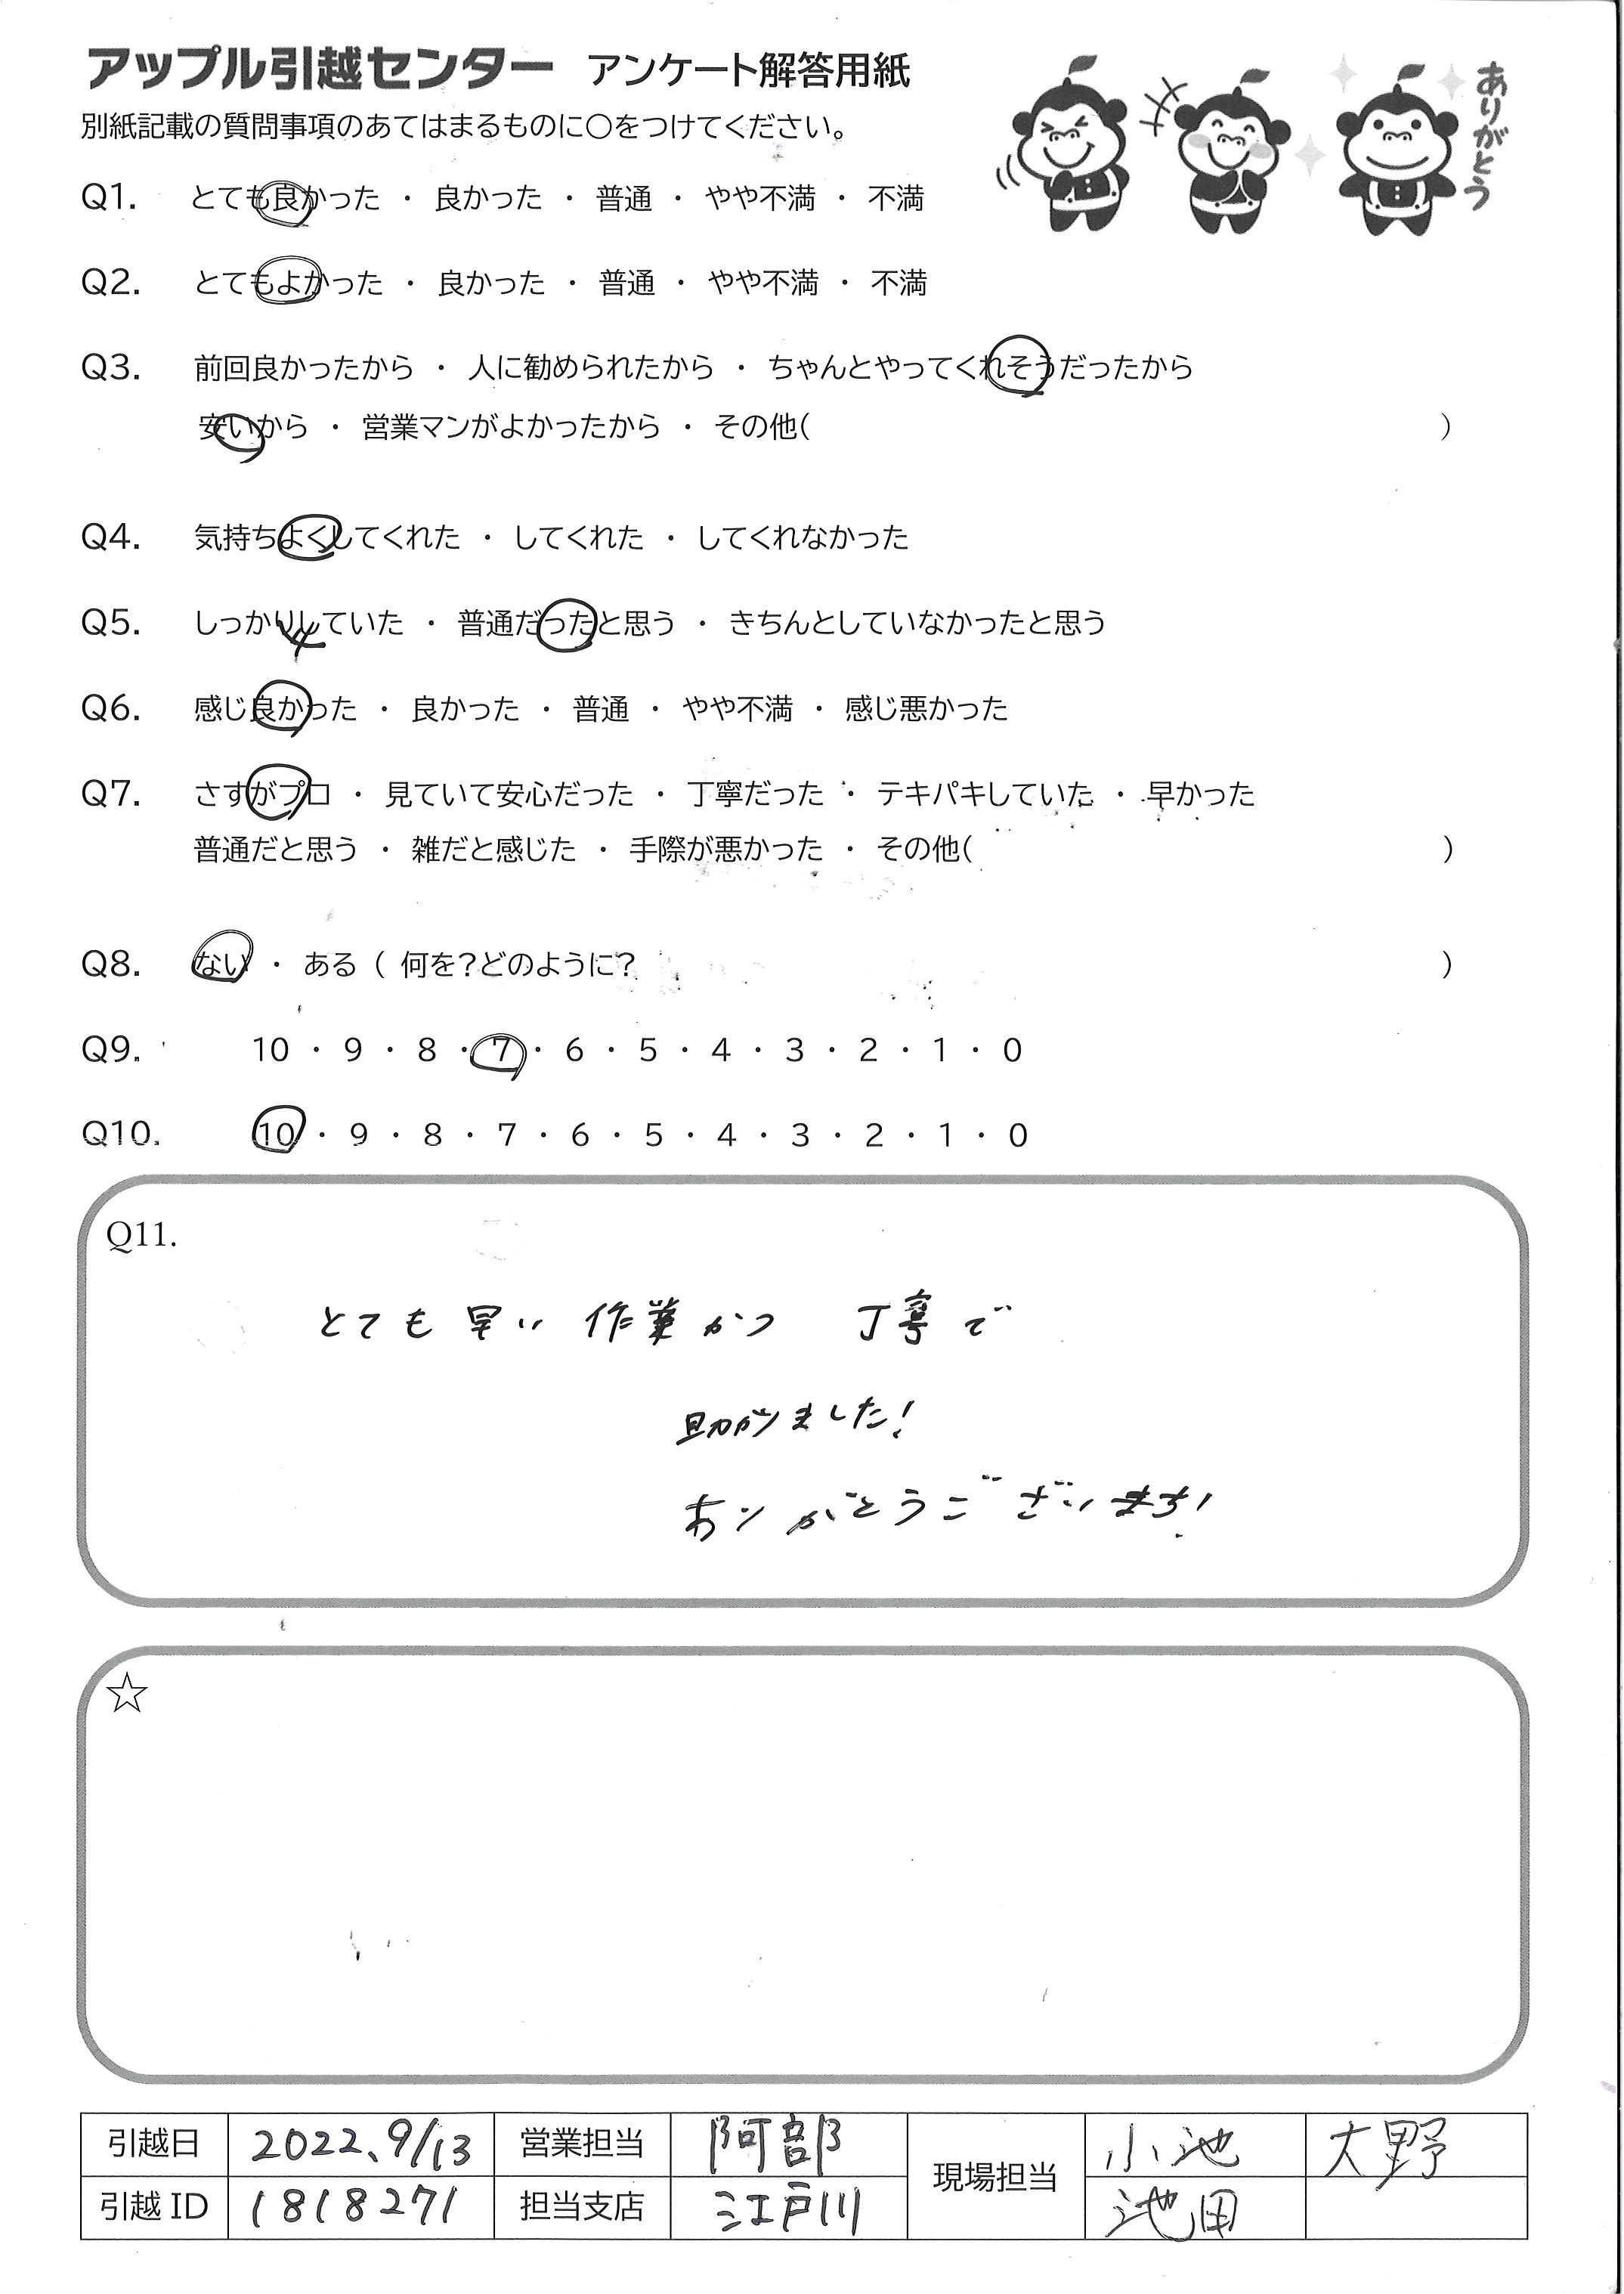 アップル引越センター アンケート解答用紙
別紙記載の質問事項のあてはまるものに○をつけてください。
ありがとう
Q1. とても良かった ・ 良かった ・ 普通 ・ やや不満 ・ 不満
Q2. とてもよかった ・ 良かった ・ 普通 ・ やや不満 ・ 不満
Q3. 前回良かったから ・ 人に勧められたから ・ ちゃんとやってくれそうだったから
安いから ・ 営業マンがよかったから ・ その他( )
Q4. 気持ちよくしてくれた ・ してくれた ・ してくれなかった
Q5. しっかりしていた ・ 普通だったと思う ・ きちんとしていなかったと思う
Q6. 感じ良かった ・ 良かった ・ 普通 ・ やや不満 ・ 感じ悪かった
Q7. さすがプロ ・ 見ていて安心だった ・ 丁寧だった ・ テキパキしていた ・ 早かった
普通だと思う ・ 雑だと感じた ・ 手際が悪かった ・ その他( )
Q8. ない ・ ある ( 何を?どのように? )
Q9. 10 ・ 9 ・ 8 ・ 7 ・ 6 ・ 5 ・ 4 ・ 3 ・ 2 ・ 1 ・ 0
Q10. 10 ・ 9 ・ 8 ・ 7 ・ 6 ・ 5 ・ 4 ・ 3 ・ 2 ・ 1 ・ 0
Q11.
とても早い作業かつ 丁寧で
助かりました!
ありがとうございます!
☆
引越日 2022、9/13 営業担当 阿部 現場担当 小池 大野
引越ID 1818271 担当支店 江戸川 池田